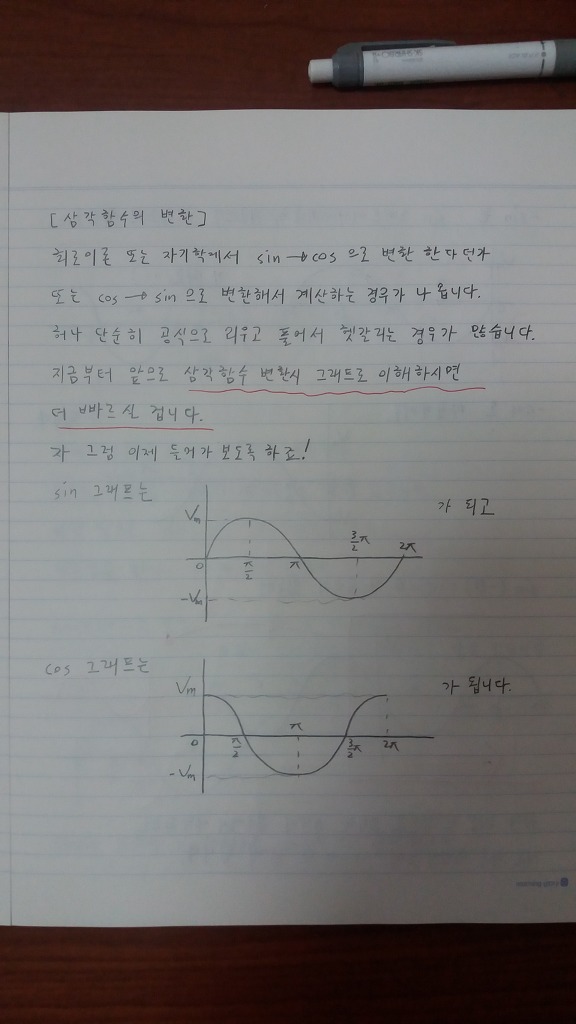 [삼각함수의 변환]
회로이론 또는 자기학에서 sin → cos 으로 변환 한다던가
또는 cos → sin 으로 변환해서 계산하는 경우가 나옵니다.
허나 단순히 공식으로 리우고 풀어서 헷갈리는 경우가 많습니다.
지금부터 앞으로 삼각함수 변환시 그래프로 이해하시면
더 빠르실 겁니다.
자 그럼 이제 들어가 보도록 하죠!
sin 그래프는
가 되고
Vm
0
π/2
π
3/2 π
2π
-Vm
cos 그래프는
가 됩니다.
Vm
0
π/2
π
3/2 π
2π
-Vm